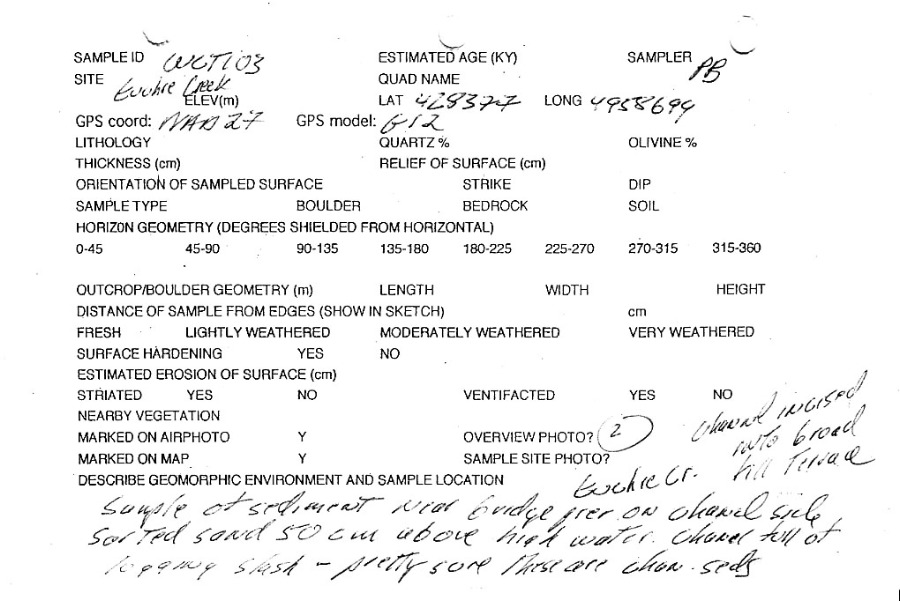 SAMPLE ID WCT103 ESTIMATED AGE (KY) SAMPLER PB
SITE Euchre Creek QUAD NAME
ELEV(m) LAT 428377 LONG 4958694
GPS coord: NAD 27 GPS model: G12
LITHOLOGY QUARTZ % OLIVINE %
THICKNESS (cm) RELIEF OF SURFACE (cm)
ORIENTATION OF SAMPLED SURFACE STRIKE DIP
SAMPLE TYPE BOULDER BEDROCK SOIL
HORIZON GEOMETRY (DEGREES SHIELDED FROM HORIZONTAL)
0-45 45-90 90-135 135-180 180-225 225-270 270-315 315-360
OUTCROP/BOULDER GEOMETRY (m) LENGTH WIDTH HEIGHT
DISTANCE OF SAMPLE FROM EDGES (SHOW IN SKETCH) cm
FRESH LIGHTLY WEATHERED MODERATELY WEATHERED VERY WEATHERED
SURFACE HARDENING YES NO
ESTIMATED EROSION OF SURFACE (cm)
STRIATED YES NO VENTIFACTED YES NO
NEARBY VEGETATION
MARKED ON AIRPHOTO Y OVERVIEW PHOTO? 2
MARKED ON MAP Y SAMPLE SITE PHOTO?
channel incised
into broad
fill Terrace
DESCRIBE GEOMORPHIC ENVIRONMENT AND SAMPLE LOCATION Euchre Cr.
Sample of sediment near bridge pier on chanel side
Sorted sand 50 cm above high water. Chanel full of
logging slash - pretty sure These are chan. seds